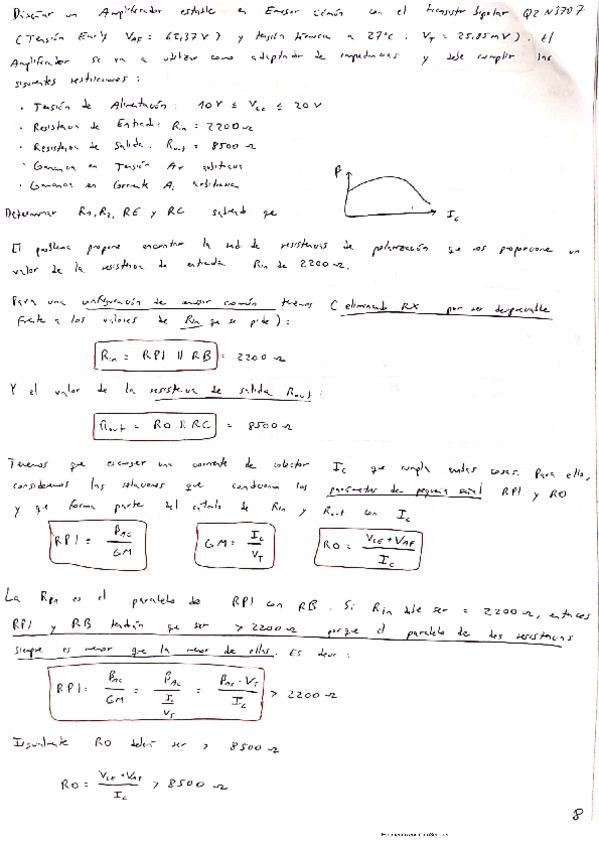 Diseñar un Amplificador estable en Emisor Común con el transistor bipolar Q2N3707
(Tensión Early VAF = 62,37V) y tensión térmica a 27°C: VT = 25.85mV). El
Amplificador se va a utilizar como adaptador de impedancias y debe cumplir las
siguientes restricciones:
· Tensión de Alimentación: 10V ≤ Vcc ≤ 20V
· Resistencia de Entrada: Rin = 2200Ω
· Resistencia de Salida: Rout = 8500Ω
· Ganancia en Tensión Av arbitraria
· Ganancia en Corriente Ai arbitraria
β
Ic
Determinar R1, R2, RE y RC sabiendo que
El problema propone encontrar la red de resistencias de polarización que nos proporcione un
valor de la resistencia de entrada Rin de 2200Ω.
Para una configuración de emisor común tenemos (eliminando RX por ser despreciable
frente a los valores de Rin que se pide):
Rin = RPI || RB = 2200Ω
Y el valor de la resistencia de salida Rout:
Rout = RO || RC = 8500Ω
Tenemos que escoger una corriente de colector Ic que cumpla ambas cosas. Para ello,
consideremos las soluciones que condicionan los parámetros de pequeña señal RPI y RO
y que forma parte del cálculo de Rin y Rout con Ic
RPI = βAC / GM GM = Ic / VT RO = VCE + VAF / Ic
La RPI es el paralelo de RPI con RB. Si Rin debe ser = 2200Ω, entonces
RPI y RB tendrán que ser > 2200Ω porque el paralelo de dos resistencias
siempre es menor que la menor de ellas. Es decir:
RPI = βAC / GM = βAC / Ic / VT = βAC · VT / Ic > 2200Ω
Igualmente RO deberá ser > 8500Ω
RO = VCE + VAF / Ic > 8500Ω
8